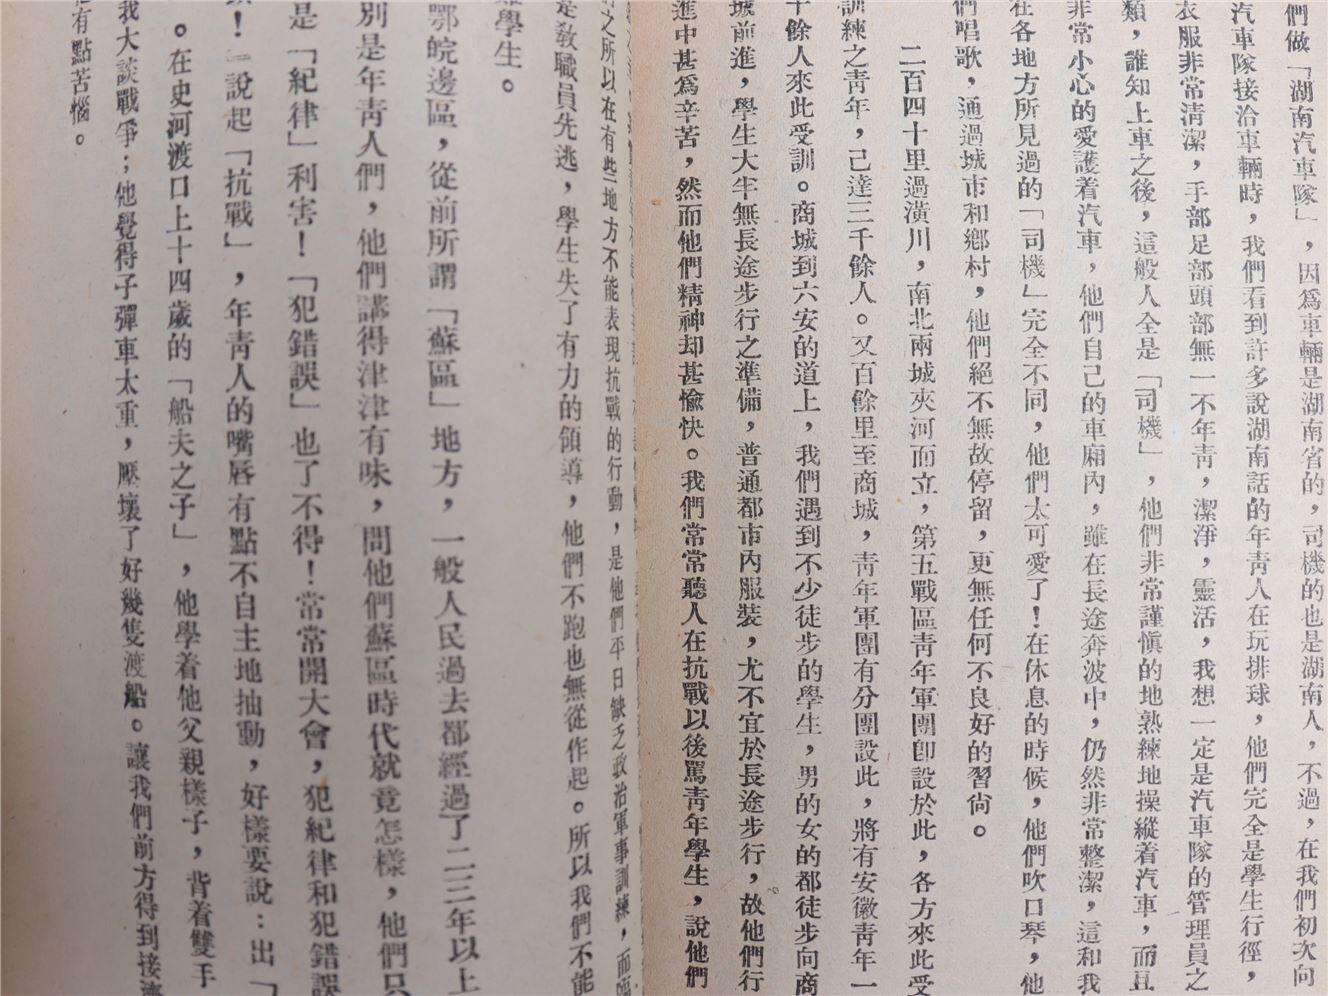 們做「湖南汽車隊」，因爲車輛是湖南省的，司機的也是湖南人，不過，在我們初次向
汽車隊接洽車輛時，我們看到許多說湖南話的年靑人在玩排球，他們完全是學生行徑，
衣服非常清潔，手部足部頭部無一不年靑，潔淨，靈活，我想一定是汽車隊的管理員之
類，誰知上車之後，這般人全是「司機」，他們非常謹愼的地熟練地操縱着汽車，而且
非常小心的愛護着汽車，他們自己的車廂內，雖在長途奔波中，仍然非常整潔，這和我
在各地方所見過的「司機」完全不同，他們太可愛了！在休息的時候，他們吹口琴，他
們唱歌，通過城市和鄉村，他們絕不無故停留，更無任何不良好的習尙。
二百四十里過潢川，南北兩城夾河而立，第五戰區靑年軍團卽設於此，各方來此受
訓練之靑年，已達三千餘人。又百餘里至商城，靑年軍團有分團設此，將有安徽靑年一
千餘人來此受訓。商城到六安的道上，我們遇到不少徒步的學生，男的女的都徒步向商
城前進，學生大半無長途步行之準備，普通都市內服裝，尤不宜於長途步行，故他們行
進中甚爲辛苦，然而他們精神却甚愉快。我們常常聽人在抗戰以後罵靑年學生，說他們
之所以在有些地方不能表現抗戰的行動，是他們平日缺乏政治軍事訓練，而
是敎職員先逃，學生失了有力的領導，他們不跑也無從作起。所以我們不能
學生。
鄂皖邊區，從前所謂「蘇區」地方，一般人民過去都經過了二三年以上
別是年靑人們，他們講得津津有味，問他們蘇區時代就竟怎樣，他們只
是「紀律」利害！「犯錯誤」也了不得！常常開大會，犯紀律和犯錯誤
！」說起「抗戰」，年靑人的嘴唇有點不自主地抽動，好樣要說：出「
。在史河渡口上十四歲的「船夫之子」，他學着他父親樣子，背着雙手
我大談戰爭；他覺得子彈車太重，壓壞了好幾隻渡船。讓我們前方得到接濟
有點苦惱。